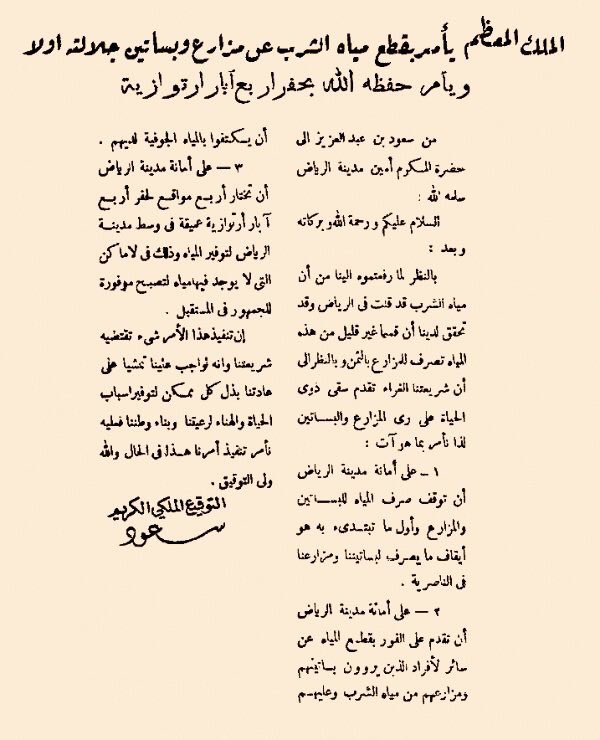 الملك المعظم يأمر بقطع مياه الشرب عن مزارع وبساتين جلالته اولا
ويأمر حفظه الله بحفر اربع آبار ارتوازية
من سعود بن عبد العزيز الى
حضرة المكرم أمين مدينة الرياض
سلمه الله :
السلام عليكم ورحمة الله وبركاته
وبعد :
بالنظر لما رفعتموه الينا من أن
مياه الشرب قد قلت في الرياض وقد
تحقق لدينا أن قسما غير قليل من هذه
المياه تصرف للمزارع بالثمن وبالنظر الى
أن شريعتنا الغراء تقدم سقى ذوى
الحياة على رى المزارع والبساتين
لذا نأمر بما هو آت :
١ ــ على أمانة مدينة الرياض
أن توقف صرف المياه للبساتين
والمزارع وأول ما تبتدىء به هو
أيقاف ما يصرف لبساتيننا ومزارعنا
فى الناصرية .
٢ ــ على أمانة مدينة الرياض
أن تقدم على الفور بقطع المياه عن
سائر لأفراد الذين يروون بساتينهم
ومزارعهم من مياه الشرب وعليهم
أن يكتفوا بالمياه الجوفية لديهم .
٣ ــ على أمانة مدينة الرياض
أن تختار أربع مواقع لحفر أربع
آبار أرتوازية عميقة فى وسط مدينة
الرياض لتوفير المياه وذلك فى لاماكن
التى لا يوجد فيها مياه لتصبح موفورة
للجمهور فى المستقبل .
إن تنفيذ هذا الأمر شىء تقتضيه
شريعتنا وانه لواجب علينا تمشيا على
عادتنا بذل كل ممكن لتوفير اسباب
الحياة والهناء لرعيتنا وبناء وطننا فعليه
نأمر تنفيذ أمرنا هذا فى الحال والله
ولى التوفيق .
التوقيع الملكي الكريم
سعود